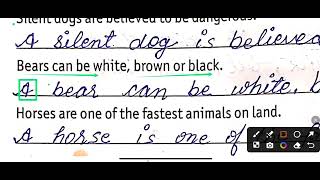 Silent dogs are believed to be dangerous.
A silent dog is believed
Bears can be white, brown or black.
A bear can be white,
Horses are one of the fastest animals on land.
A horse is one of